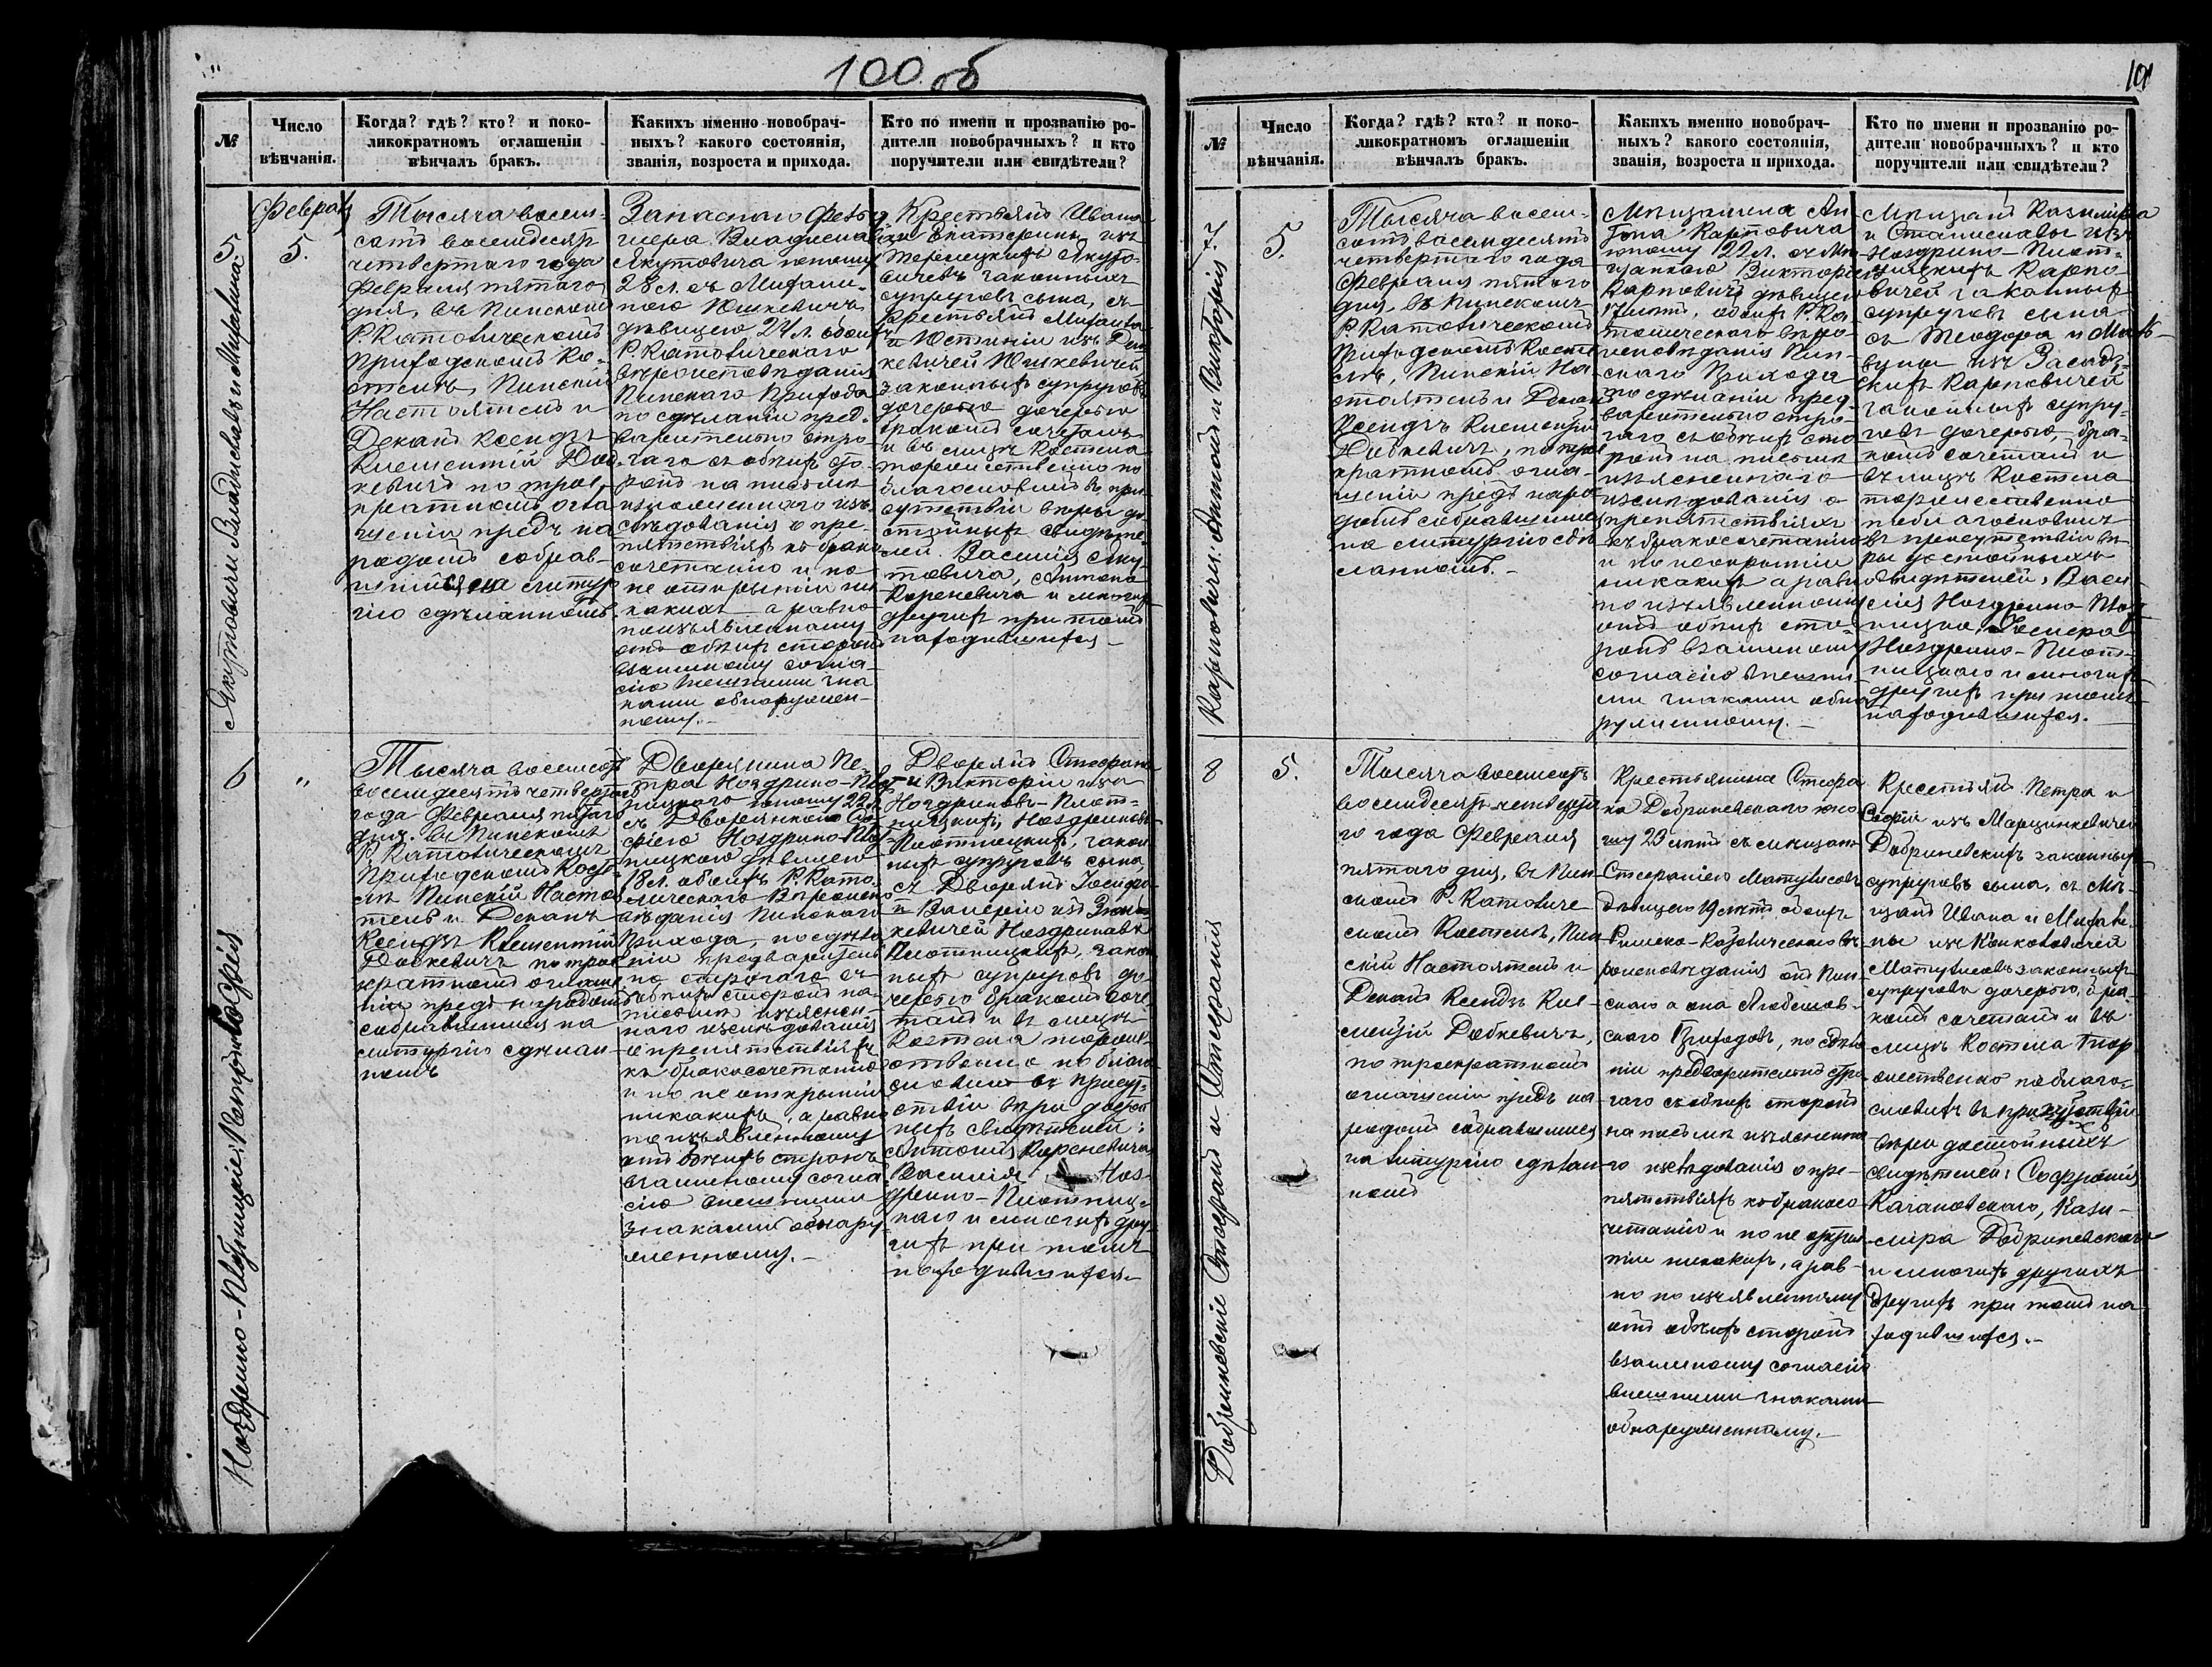 100 об
№
Число
вѣнчанія.
Когда? гдѣ? кто? и поко-
ликократномъ оглашеніи
вѣнчалъ бракъ.
Какихъ именно новобрач-
ныхъ? какого состоянія,
званія, возроста и прихода.
Кто по имени и прозванію ро-
дители новобрачныхъ? и кто
поручители или свидѣтели?
5.
Якутовичи Владиславъ и Михалина
Феврал
5.
Тысяча восем-
сотъ восемдесят
четвертаго года
Февраля пятаго
дня, въ Пинском
Р. Католическомъ
Приходскомъ Ко-
стелѣ, Пинскій
Настоятель и
Деканъ Ксендзъ
Клементій Доб-
кевичъ по трое-
кратномъ огла
шеніи предъ на
родомъ собрав-
шимся на литур
гію сдѣланномъ.
Запаснаго
Владислава
Якутовича юношу
28 л. съ Михали-
ною Юшкевичъ
дѣвицею 24 л. обоих
Р. Католическаго
вѣроисповѣданія
Пинскаго Прихода
по сдѣланіи пред-
варительно стро-
гаго съ обѣихъ сто
ронъ на письмѣ
изъ
слѣдованія о пре-
пятствіяхъ къ брако
сочетанію и по
не открытіи ни
какихъ а равно
поизъявленному
отъ обѣихъ сторонъ
взаимному согла-
сію внешними зна
ками обнаружен-
ному.-
Крестьянъ Ивана
и Екатерины изъ
Якуто-
вичевъ законныхъ
супруговъ сына, съ
Крестьянъ Михаила
и Юстиніи изъ
кевичей Юшкевичей
законныхъ супруговъ
дочерью дочерью
бракомъ сочеталъ
и въ лицѣ Костела
торжественно по
благословилъ въ при
сутствіи вѣры до
стойныхъ свидѣте
лей. Василія Яку
товича, Антона
Кореневича и многихъ
другихъ при томъ
находившихся-
6
Ноздрино-Плотницкіе Петръ и Софія
"
Тысяча восемсот
восемдесятъ четвертаго
года Февраля пятаго
дня. въ Пинскомъ
Р. Католическомъ
Приходскомъ Косте
лѣ Пинскій Настоя
тель и Деканъ
Ксендзъ Клементій
Добкевичъ по трое
кратномъ оглаше
ніи предъ народомъ
собравшимся на
литургію сдѣлан-
номъ
Дворянина Пе-
тра Ноздрино-Плот
ницкаго юношу 22 л.
съ Дворянкою Со-
фіею Ноздрино-Плот
ницкою дѣвицею
18 л. обоихъ Р. Като-
лическаго Вѣроиспо
вѣданія Пинскаго
Прихода, по сдѣла
ніи предварительн
но строгаго съ
обѣихъ сторонъ на
письмѣ изъяснен-
наго изслѣдованія
о препятствіяхъ
къ бракосочетанію
и по не открытіи
никакихъ, а равно
по изъявленному
отъ обѣихъ сторонъ
взаимному согла
сію внешними
знаками обнару
женному.-
Дворянъ Стефана
и Викторіи изъ
Ноздриновъ-Плот-
ницкихъ, Ноздриновъ
Плотницкихъ, закон
ныхъ супруговъ сына,
съ Дворянъ Іосифа
и Валеріи изъ
кевичей Ноздриновъ
Плотницкихъ, закон
ныхъ супруговъ до
черью бракомъ соче
талъ и въ лицѣ
Костела торжe-
ственно по благо
словилъ въ присут
ствіи вѣры достой
ныхъ свидѣтелей:
Антонія Кореневича
Василія Ноз-
дрино-Плотниц-
каго и многихъ дру
гихъ при томъ
находившихся.-
101
№
Число
вѣнчанія.
Когда? гдѣ? кто? и поко-
ликократномъ оглашеніи
вѣнчалъ бракъ.
Какихъ именно новобрач-
ныхъ? какого состоянія,
званія, возроста и прихода.
Кто по имени и прозванію ро-
дители новобрачныхъ? и кто
поручители или свидѣтели?
7.
Карповичи. Антонъ и Викторія
5.
Тысяча восем-
сотъ восемдесятъ
четвертаго года
Февраля пятого
дня, въ Пинскомъ
Р. Католическомъ
Приходскомъ Косте
лѣ, Пинскій На-
стоятель и Деканъ
Ксендзъ Клементій
Добкевичъ, по трое
кратномъ огла-
шеніи предъ наро
домъ собравшимся
на литургію сдѣ
ланномъ.-
Мѣщанина Ан-
тона Карповича
юношу 22 л. съ Мѣ-
щанкою Викторіею
Карповичъ дѣвицею
17 лѣтъ, обоихъ Р. Ка
толическаго вѣро
исповѣданія Пин-
скаго Прихода
по сдѣланіи пред-
варительно стро-
гаго съ обѣихъ сто
ронъ на письмѣ
изъясненнаго
изслѣдованія о
препятствіяхъ
къ бракосочетанію
и по неоткрытіи
никакихъ а рав
но изъявленному
отъ обѣихъ сто-
ронъ взаимному
согласію внешни
ми знаками обна
руженному.-
Мѣщанъ Казиміра
и Станиславы изъ
Ноздрино-Плот-
ницкихъ Карпо-
вичей законныхъ
супруговъ сына
съ Теодора и
изъ
Карповичей
законныхъ супру-
говъ дочерью, бра-
комъ сочеталъ и
въ лицѣ Костела
торжественно
поблагословилъ
въ присутствіи вѣ
ры достойныхъ
свидѣтелей, Васи
лія Ноздрино-Плот
ницко, Іосифа
Ноздрино-Плот-
ницкаго и многихъ
другихъ при томъ
находившихся.-
8
Добриневскіе Стефанъ и Стефанія
5.
Тысяча восемсотъ
восемдесят четверта
го года Февраля
пятаго дня, въ Пин
скомъ Р. Католиче
скомъ Костелѣ, Пин
скій Настоятель и
Деканъ Ксендзъ Кле-
ментій Добкевичъ,
по троекратномъ
оглашеніи предъ на
родомъ собравшимся
на литургію сдѣлан-
номъ
Крестьянина Стефа
на Добриневскаго юно
шу 23 лѣтъ съ мѣщан
Стефаніею Матусевичъ
Дѣвицею 19 лѣтъ, обоихъ
Римско-Католическаго вѣ
роисповѣданія онъ Пин-
скаго а она Любешов-
скаго Приходовъ, по сдѣла
ніи предварительно стро-
гаго съ обѣихъ сторонъ
на письмѣ изъясненна
го изслѣдованія о пре-
пятствіяхъ къ бракосо
четанію и по не откры
тіи никакихъ, а рав-
но по изъявленному
отъ обѣихъ сторонъ
взаимному согласію
внешними знаками
обнаруженному.-
Крестьянъ Петра и
Софіи изъ Марцинкевичей
Добриневскихъ законныхъ
супруговъ сына, съ Мѣ-
щанъ Ивана и Михали-
ны изъ
законныхъ
супруговъ дочерью, бра-
комъ сочеталъ и въ
лицѣ Костела Тор
жественно поблаго-
словилъ въ присутствіи
вѣры достойныхъ
свидѣтелей: Софронія
Качановскаго, Кази-
мира Добриневскаго
и многихъ другихъ
другихъ при томъ на
ходившихся.-